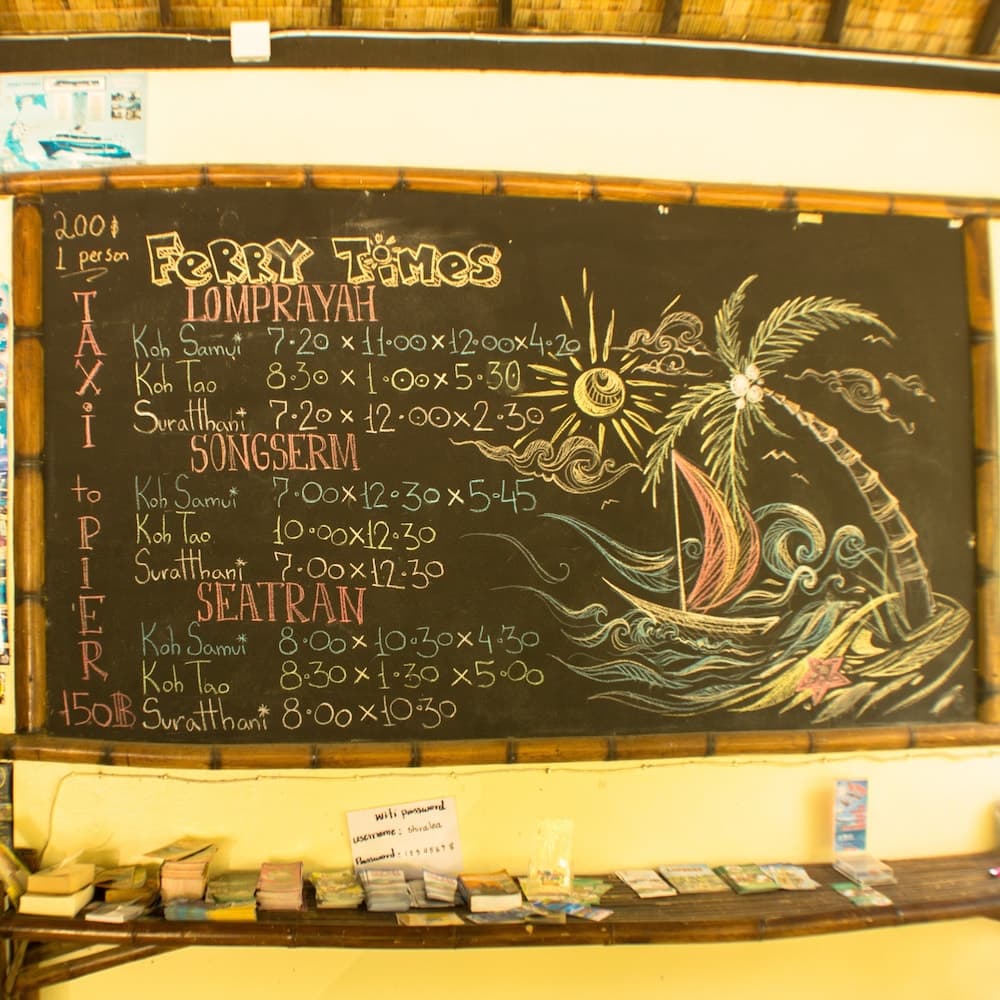 200฿
1 person
FeRRY TiMes
TAXi to PIER
150B
LOMPRAYAH
Koh Samui* 7·20 x 11·00 x 12·00 x 4·20
Koh Tao 8·30 x 1·00 x 5·30
Suratthani* 7·20 x 12·00 x 2·30
SONGSERM
Koh Samui* 7·00 x 12·30 x 5·45
Koh Tao 10·00 x 12·30
Suratthani 7·00 x 12·30
SEATRAN
Koh Samui* 8·00 x 10·30 x 4·30
Koh Tao 8·30 x 1·30 x 5·00
Suratthani* 8·00 x 10·30
Wifi password
username: shiralea
Password: 12345678